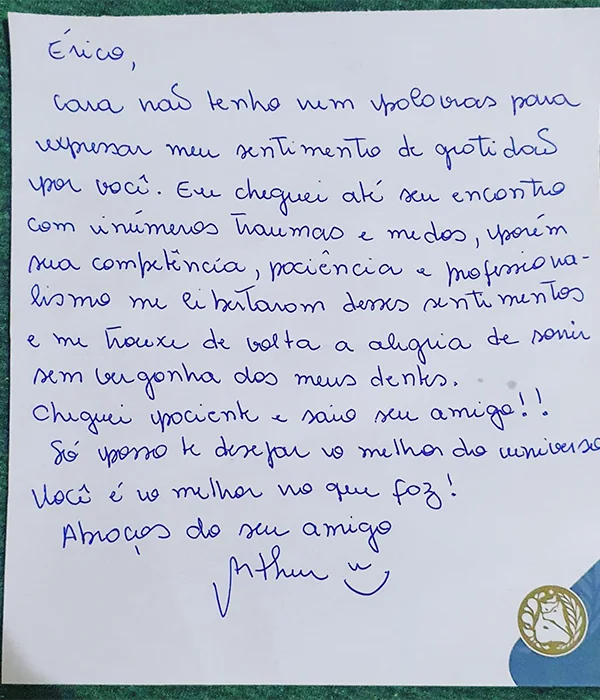 Érico,
Cara não tenho nem palavras para
expressar meu sentimento de gratidão
por você. Eu cheguei até seu encontro
com inúmeros traumas e medos, porém
sua competência, paciência e profissiona-
lismo me libertaram desses sentimentos
e me trouxe de volta a alegria de sorrir
sem vergonha dos meus dentes.
Cheguei paciente e saio seu amigo!!
Só posso te desejar o melhor do universo
Você é o melhor no que faz!
Abraços do seu amigo
Arthur